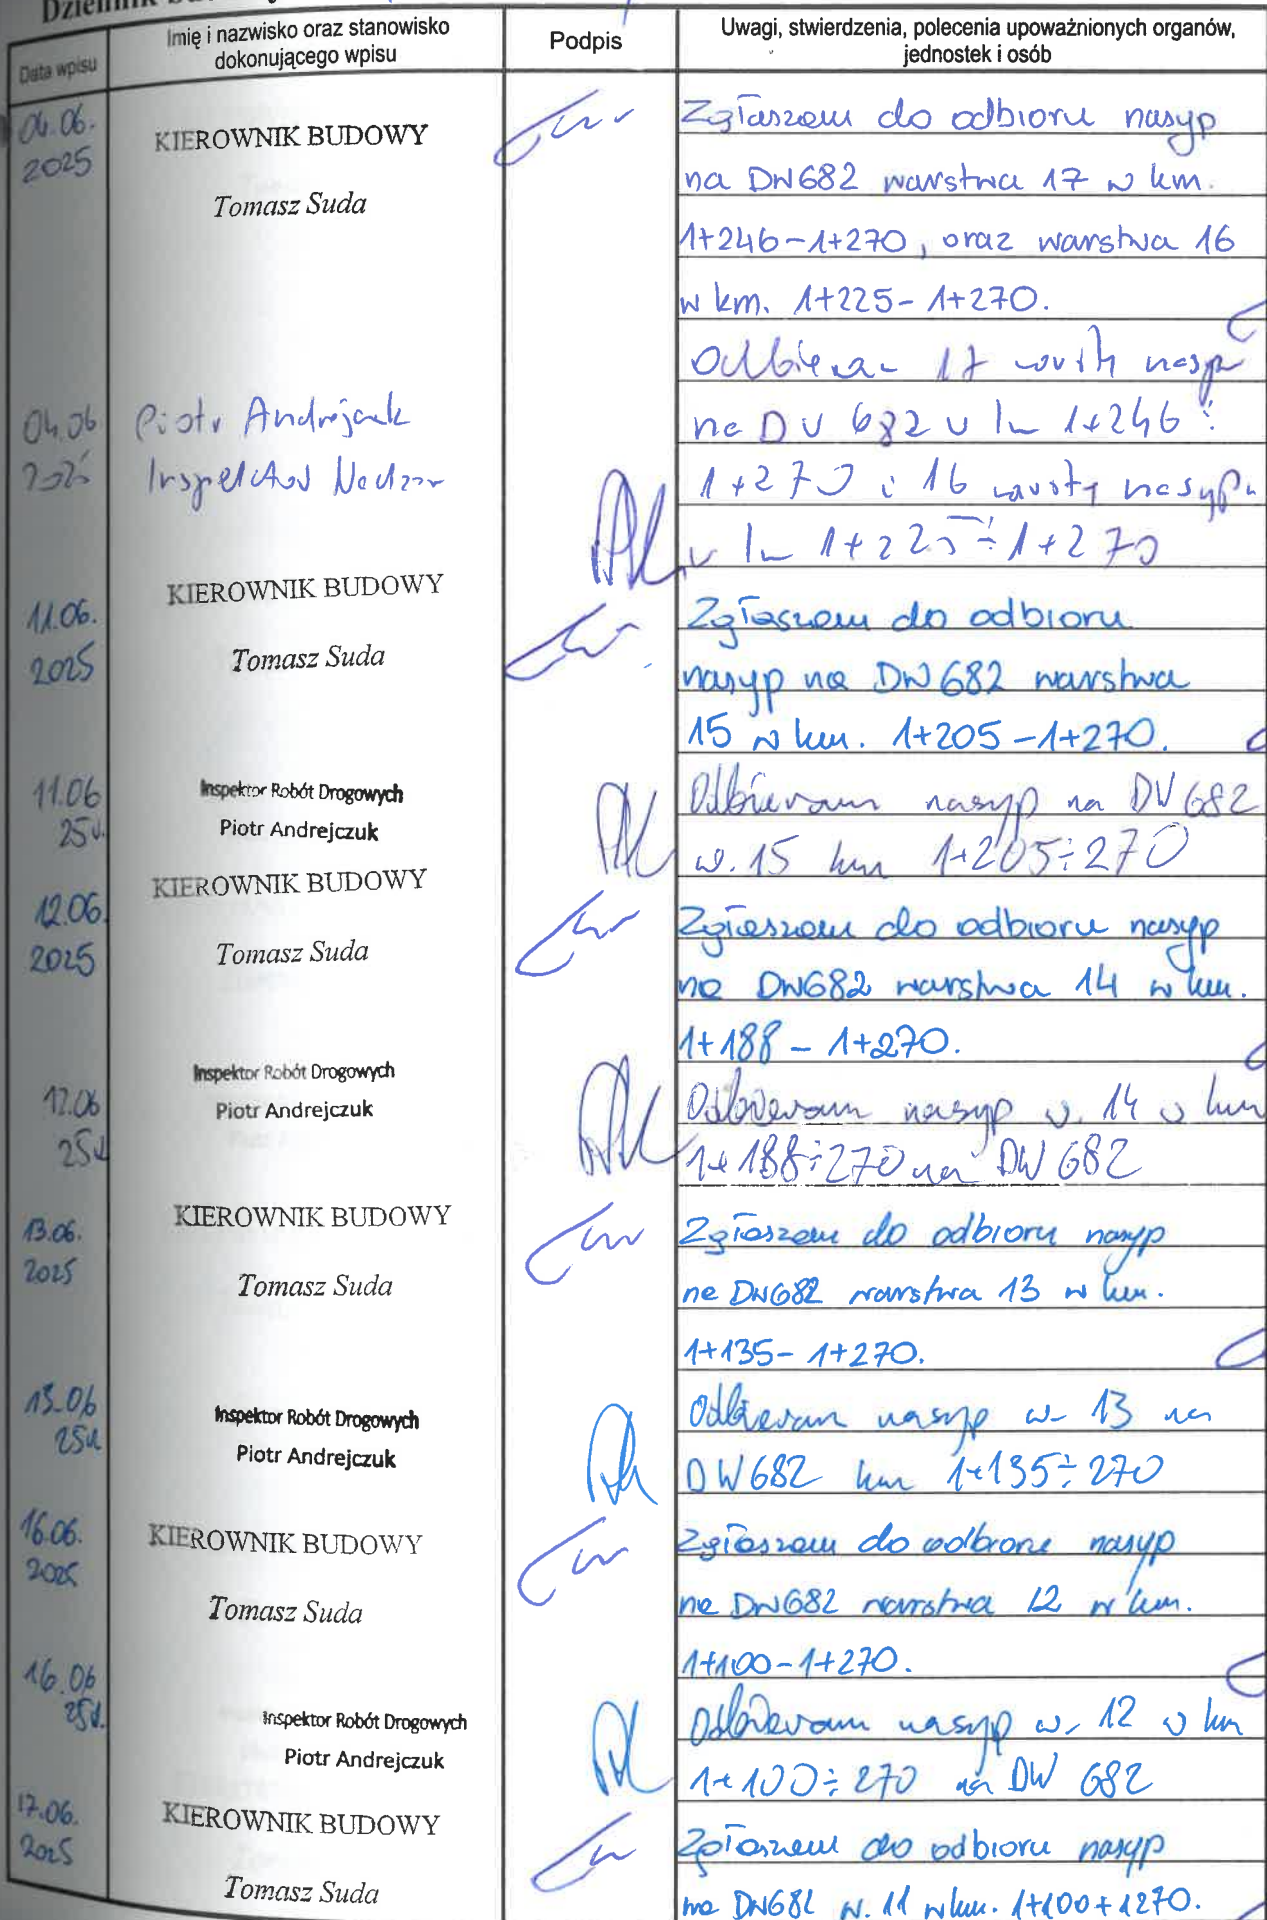 Dziennik
Data wpisu
Imię i nazwisko oraz stanowisko
dokonującego wpisu
Podpis
Uwagi, stwierdzenia, polecenia upoważnionych organów,
jednostek i osób
04.06.
2025
KIEROWNIK BUDOWY
Tomasz Suda
Zgłaszam do odbioru nasyp
na DW682 warstwa 17 w km.
1+246-1+270, oraz warstwa 16
w km. 1+225-1+270.
04.06
2025
Piotr Andrejczuk
Inspektor Nadzor
Odbieram 17 warstw nasyp
na DW 682 w km 1+246÷
1+270 i 16 warstw nasypu
w km 1+225÷1+270
11.06.
2025
KIEROWNIK BUDOWY
Tomasz Suda
Zgłaszam do odbioru
nasyp na DW682 warstwa
15 w km. 1+205-1+270.
11.06
25r.
Inspektor Robót Drogowych
Piotr Andrejczuk
Odbieram nasyp na DW 682
w. 15 km 1+205÷270
12.06.
2025
KIEROWNIK BUDOWY
Tomasz Suda
Zgłaszam do odbioru nasyp
na DW682 warstwa 14 w km.
1+188-1+270.
12.06
25r
Inspektor Robót Drogowych
Piotr Andrejczuk
Odbieram nasyp w. 14 w km
1+188÷270 na DW 682
13.06.
2025
KIEROWNIK BUDOWY
Tomasz Suda
Zgłaszam do odbioru nasyp
na DW682 warstwa 13 w km.
1+135-1+270.
13.06
25r
Inspektor Robót Drogowych
Piotr Andrejczuk
Odbieram nasyp w. 13 na
DW682 km 1+135÷270
16.06.
2025
KIEROWNIK BUDOWY
Tomasz Suda
Zgłaszam do odbioru nasyp
na DW682 warstwa 12 w km.
1+100-1+270.
16.06
25r.
Inspektor Robót Drogowych
Piotr Andrejczuk
Odbieram nasyp w. 12 w km
1+100÷270 na DW 682
17.06.
2025
KIEROWNIK BUDOWY
Tomasz Suda
Zgłaszam do odbioru nasyp
na DW682 w. 11 w km. 1+100+1270.